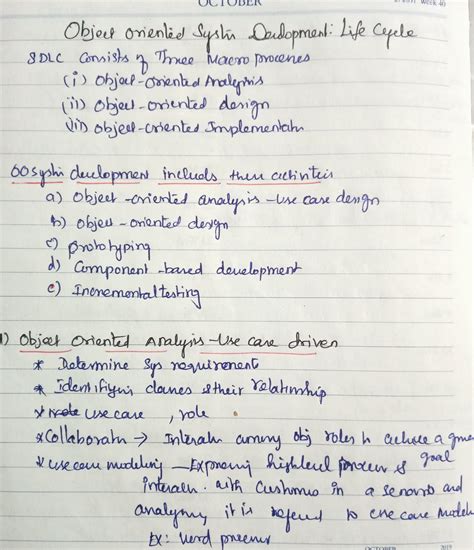 OCTOBER
Week 40
Object oriented System Development: Life Cycle
SDLC Consists of Three Macro processes
(i) Object-oriented Analysis
(ii) Object-oriented design
(iii) Object-oriented Implementatn
OO systm development includes these activities
a) Object-oriented analysis-use case design
b) object-oriented design
c) prototyping
d) Component-based development
e) Incremental testing
1) Object Oriented Analysis-Use case driven
* Determine Sys requirement
* identifying classes & their relationship
* use case, role
* Collaboratn → Interatn among obj roles to achieve a given goal
* use case modeling - Expressing highlevel process &
interatn. with Customers in a senario and
analyzing it is refered to use case modeli
EX: word processor
OCTOBER
2019